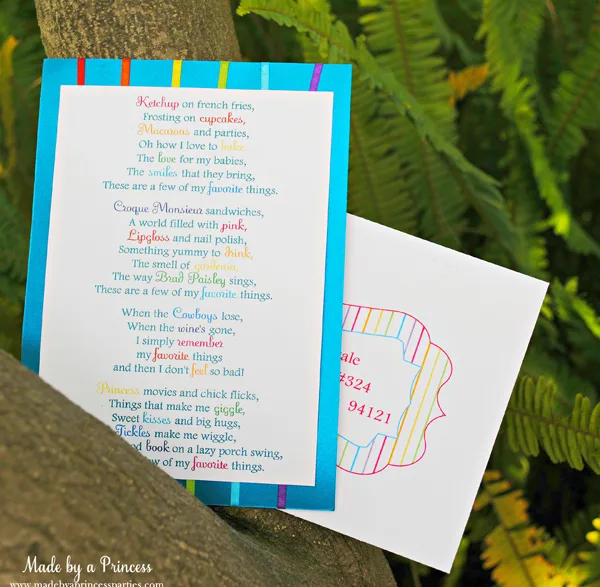 Ketchup on french fries,
Frosting on cupcakes,
Macarons and parties,
Oh how I love to bake.
The love for my babies,
The smiles that they bring,
These are a few of my favorite things.
Croque Monsieur sandwiches,
A world filled with pink,
Lipgloss and nail polish,
Something yummy to drink,
The smell of gardenia,
The way Brad Paisley sings,
These are a few of my favorite things.
When the Cowboys lose,
When the wine's gone,
I simply remember
my favorite things
and then I don't feel so bad!
Princess movies and chick flicks,
Things that make me giggle,
Sweet kisses and big hugs,
Tickles make me wiggle,
book on a lazy porch swing,
of my favorite things.
#324
94121
Made by a Princess
www.madebyaprincessparties.com